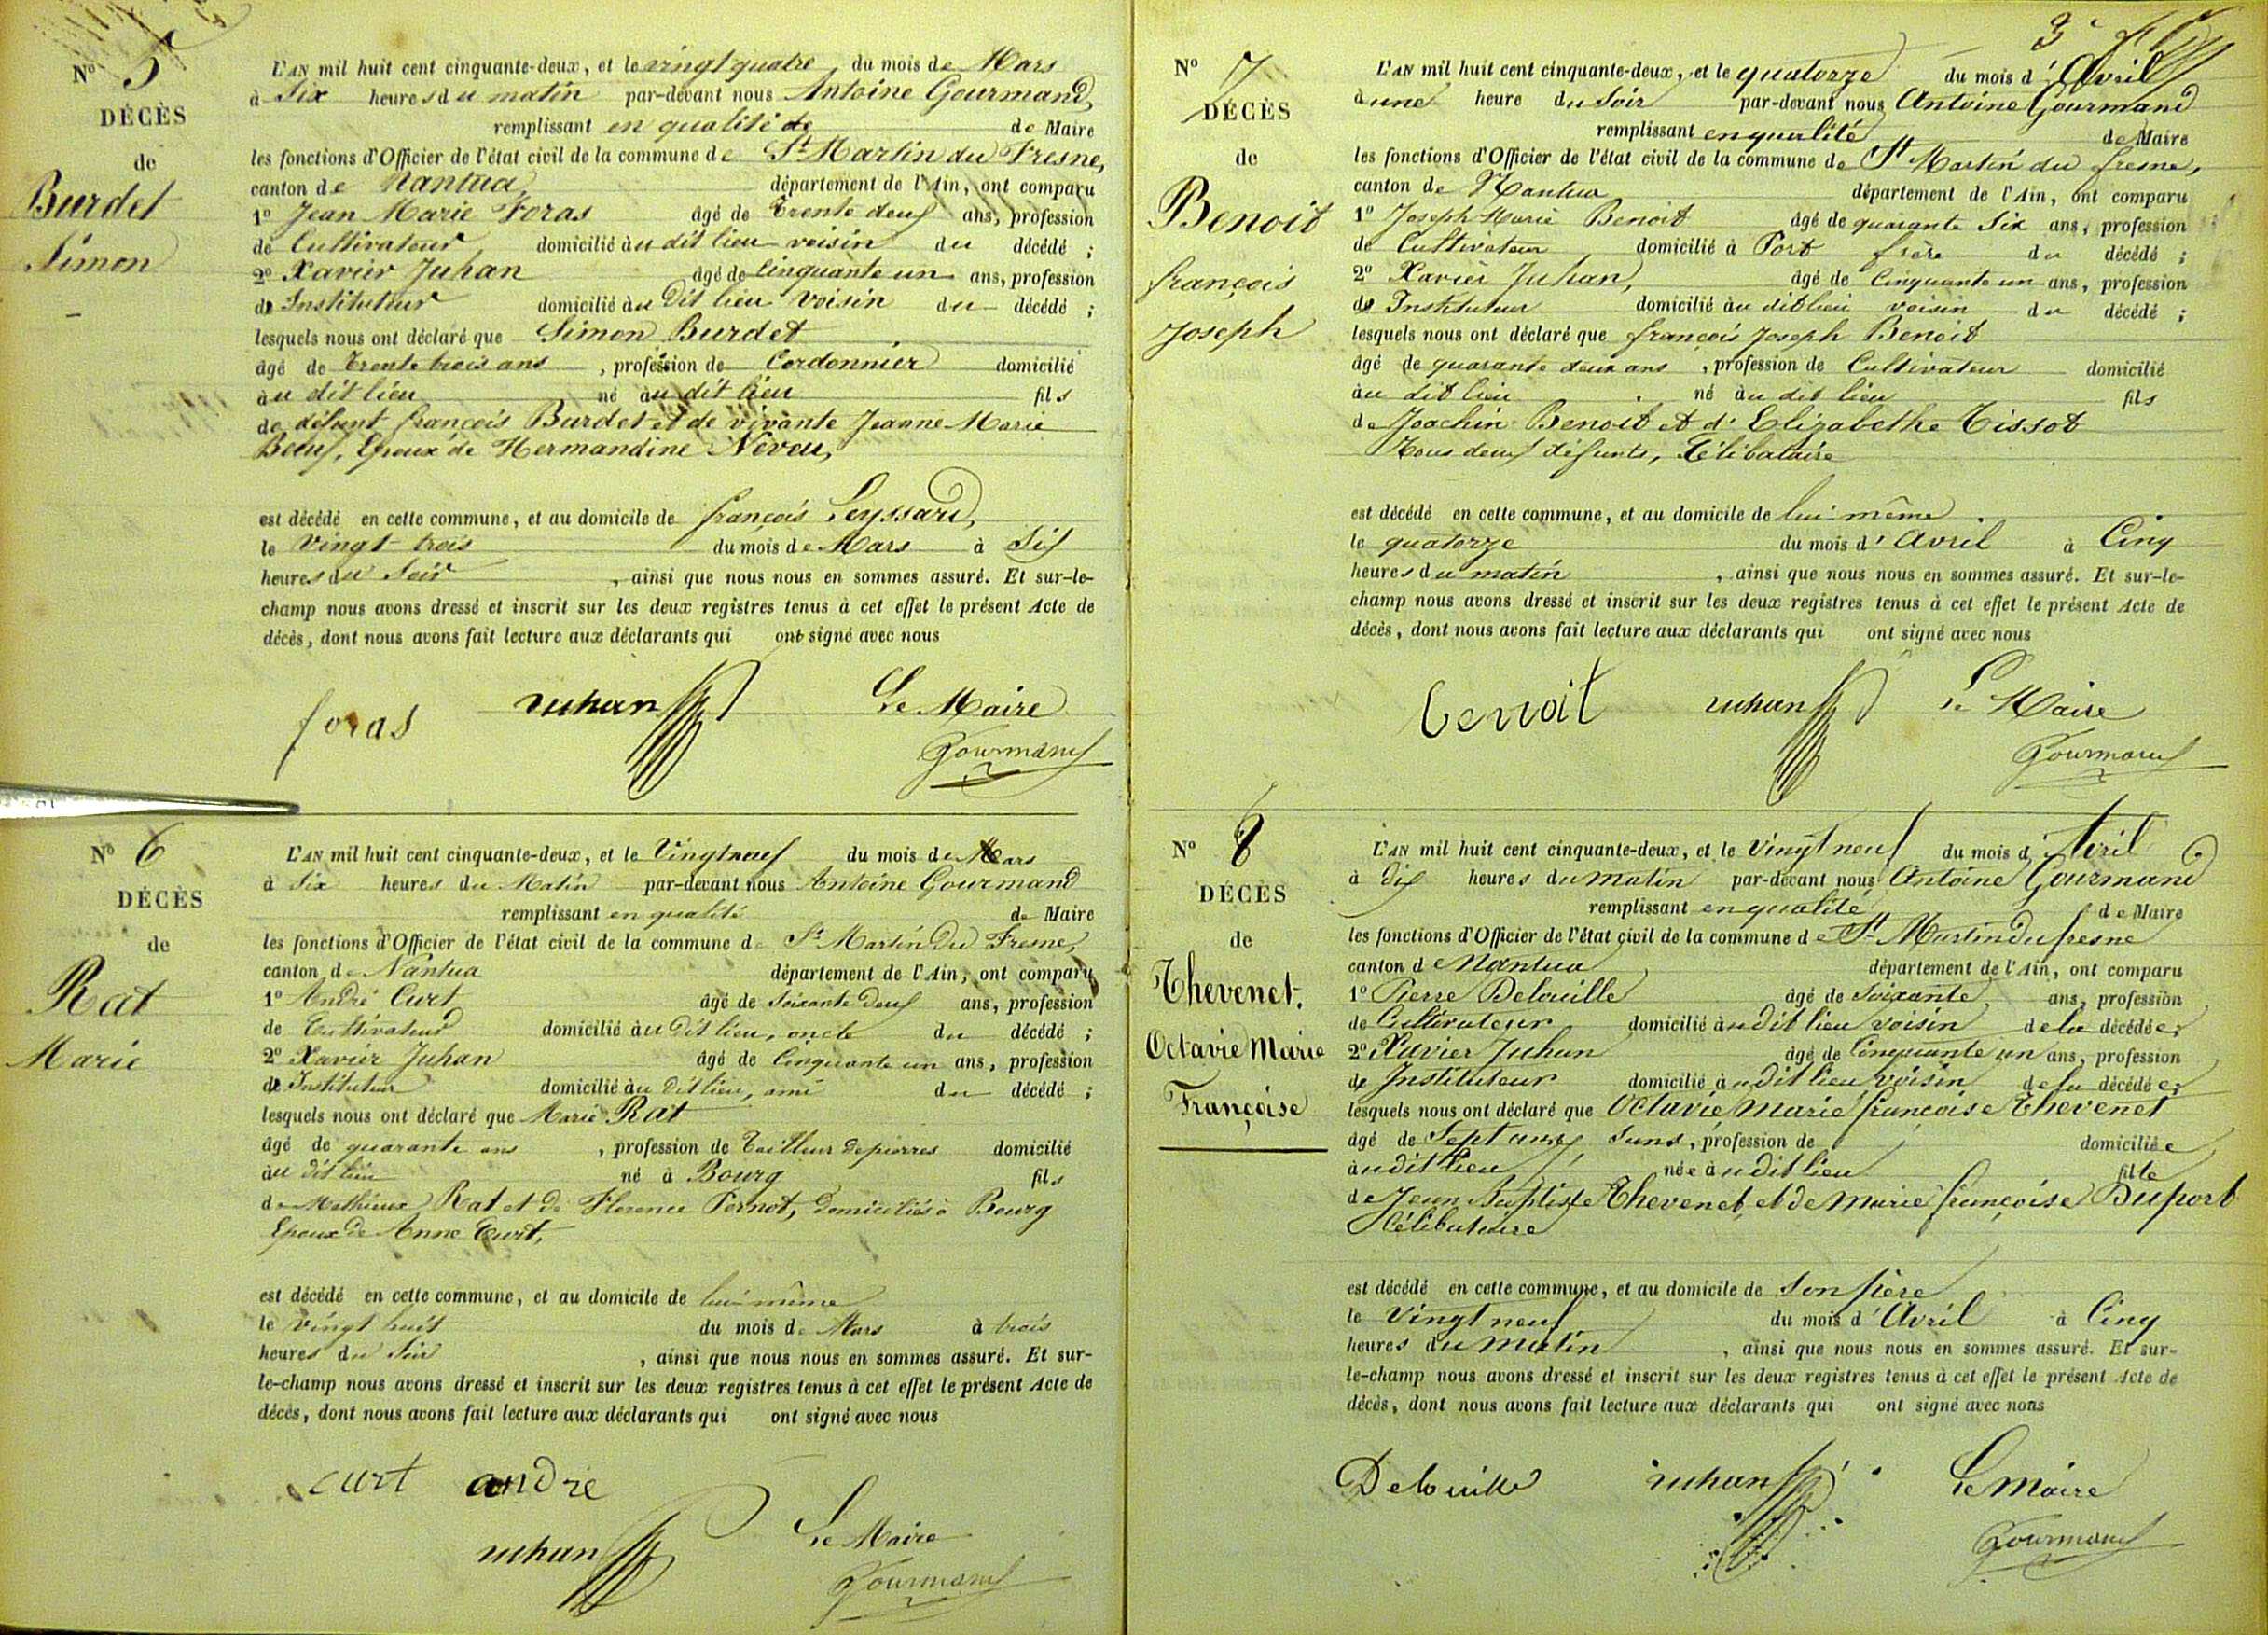 N° 5
DÉCÈS
de
Burdet
Simon
L'AN mil huit cent cinquante-deux, et le vingt quatre du mois de Mars
à Six heures du matin par-devant nous Antoine Gourmand,
remplissant en qualité de de Maire
les fonctions d'Officier de l'état civil de la commune de St Martin du Fresne,
canton de Nantua, département de l'Ain, ont comparu
1° Jean Marie Foras âgé de trente deux ans, profession
de Cultivateur domicilié au dit lieu voisin du décédé ;
2° Xavier Juhan âgé de Cinquante un ans, profession
de Instituteur domicilié au dit lieu voisin du décédé ;
lesquels nous ont déclaré que Simon Burdet
âgé de trente trois ans , profession de Cordonnier domicilié
àu dit lieu né àu dit lieu fils
de défunt françois Burdet et de vivante Jeanne Marie
Beuf, Epoux de Hermandine Neveu,
est décédé en cette commune, et au domicile de françois Leyssard,
le vingt trois du mois de Mars à Six
heures du Soir , ainsi que nous nous en sommes assuré. Et sur-le-
champ nous avons dressé et inscrit sur les deux registres tenus à cet effet le présent Acte de
décès, dont nous avons fait lecture aux déclarants qui ont signé avec nous
foras juhan Le Maire
Gourmand
N° 6
DÉCÈS
de
Rat
Marie
L'AN mil huit cent cinquante-deux, et le Vingt neuf du mois de Mars
à Six heures du Matin par-devant nous Antoine Gourmand
remplissant en qualité de Maire
les fonctions d'Officier de l'état civil de la commune de St Martin Du Fresne,
canton de Nantua département de l'Ain, ont comparu
1° André Curt âgé de Soixante deux ans, profession
de Cultivateur domicilié àu dit lieu, oncle du décédé ;
2° Xavier Juhan âgé de Cinquante un ans, profession
de Instituteur domicilié àu dit lieu, ami du décédé ;
lesquels nous ont déclaré que Marie Rat
âgé de quarante ans , profession de Tailleur de pierres domicilié
àu dit lieu né à Bourg fils
de Mathieu Rat et de Florence Pernot, domiciliés à Bourg
Epoux de Anne Curt,
est décédé en cette commune, et au domicile de lui-même
le vingt huit du mois de Mars à trois
heures du Soir , ainsi que nous nous en sommes assuré. Et sur-
le-champ nous avons dressé et inscrit sur les deux registres tenus à cet effet le présent Acte de
décès, dont nous avons fait lecture aux déclarants qui ont signé avec nous
curt andre
juhan Le Maire
Gourmand
3e
N° 7
DÉCÈS
de
Benoit
françois
Joseph
L'AN mil huit cent cinquante-deux, et le quatorze du mois d'Avril
à une heure du Soir par-devant nous Antoine Gourmand
remplissant en qualité de Maire
les fonctions d'Officier de l'état civil de la commune de St Martin du fresne,
canton de Nantua département de l'Ain, ont comparu
1° Joseph Marie Benoit âgé de quarante Six ans, profession
de Cultivateur domicilié à Port frère du décédé ;
2° Xavier Juhan, âgé de Cinquante un ans, profession
de Instituteur domicilié àu dit lieu voisin du décédé ;
lesquels nous ont déclaré que françois Joseph Benoit
âgé de quarante deux ans , profession de Cultivateur domicilié
àu dit lieu né àu dit lieu fils
de Joachin Benoit et d'Elizabethe Tissot
Tous deux défunts, Célibataire
est décédé en cette commune, et au domicile de lui-même.
le quatorze du mois d'Avril à Cinq
heures du matin , ainsi que nous nous en sommes assuré. Et sur-le-
champ nous avons dressé et inscrit sur les deux registres tenus à cet effet le présent Acte de
décès, dont nous avons fait lecture aux déclarants qui ont signé avec nous
benoit juhan Le Maire
Gourmand
N° 8
DÉCÈS
de
Thevenet.
Octavie Marie
Françoise
L'AN mil huit cent cinquante-deux, et le vingt neuf du mois d'Avril
à dix heures du matin par-devant nous Antoine Gourmand
remplissant en qualité de Maire
les fonctions d'Officier de l'état civil de la commune de St Martin du fresne
canton de Nantua département de l'Ain, ont comparu
1° Pierre Delouille âgé de Soixante ans, profession
de Cultivateur domicilié àu dit lieu voisin de la décédée ;
2° Xavier Juhan âgé de Cinquante un ans, profession
de Instituteur domicilié àu dit lieu voisin de la décédée ;
lesquels nous ont déclaré que Octavie Marie françoise Thevenet
âgé de Sept ans, Sans, profession de domiciliée
àu dit lieu née àu dit lieu fille
de Jean Baptiste Thevenet, et de Marie françoise Duport
Célibataire
est décédé en cette commune, et au domicile de Son père
le Vingt neuf du mois d'Avril à Cinq
heures du Matin , ainsi que nous nous en sommes assuré. Et sur-
le-champ nous avons dressé et inscrit sur les deux registres tenus à cet effet le présent Acte de
décès, dont nous avons fait lecture aux déclarants qui ont signé avec nous
Delouille juhan Le Maire
Gourmand